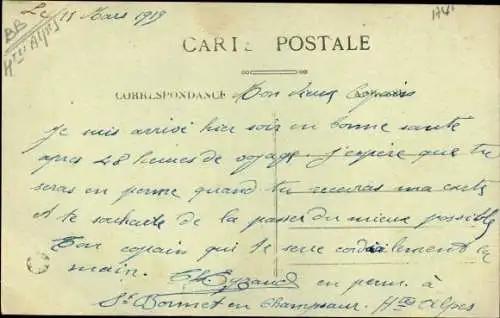 Le 15 Mars 1919
BB
Htes Alpes
CARTE POSTALE
CORRESPONDANCE Mon vieux Copain
Je suis arrivé hier soir en bonne santé
apres 48 heures de voyage. j'espère que tu
seras en perme quand tu recevras ma carte
et te souhaite de la passer du mieux possible
Ton copain qui te serre cordialement la
main. en perm. à
St Bonnet en Champsaur. Htes Alpes